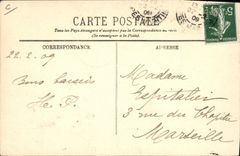 CARTE POSTALE
Tous les Pays étrangers n'acceptent pas la Correspondance au recto
(Se renseigner à la Poste)
CORRESPONDANCE
ADRESSE
22.2.09
Bons baisers
H. P.
Madame
Espitalier
3 rue des Chapitre
Marseille